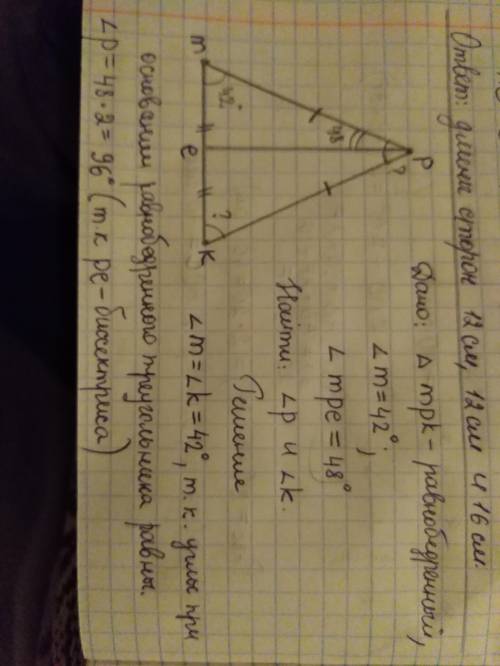 Ответ: длина сторон 12 см, 12 см и 16 см.
Дано: △ mpk - равнобедренный,
∠m = 42°;
∠mpe = 48°
Найти: ∠p и ∠k.
Решение
∠m = ∠k = 42°, т.к. углы при
основании равнобедренного треугольника равны.
∠p = 48·2 = 96° (т.к pe - биссектриса)
m
42°
e
?
K
48
?
P